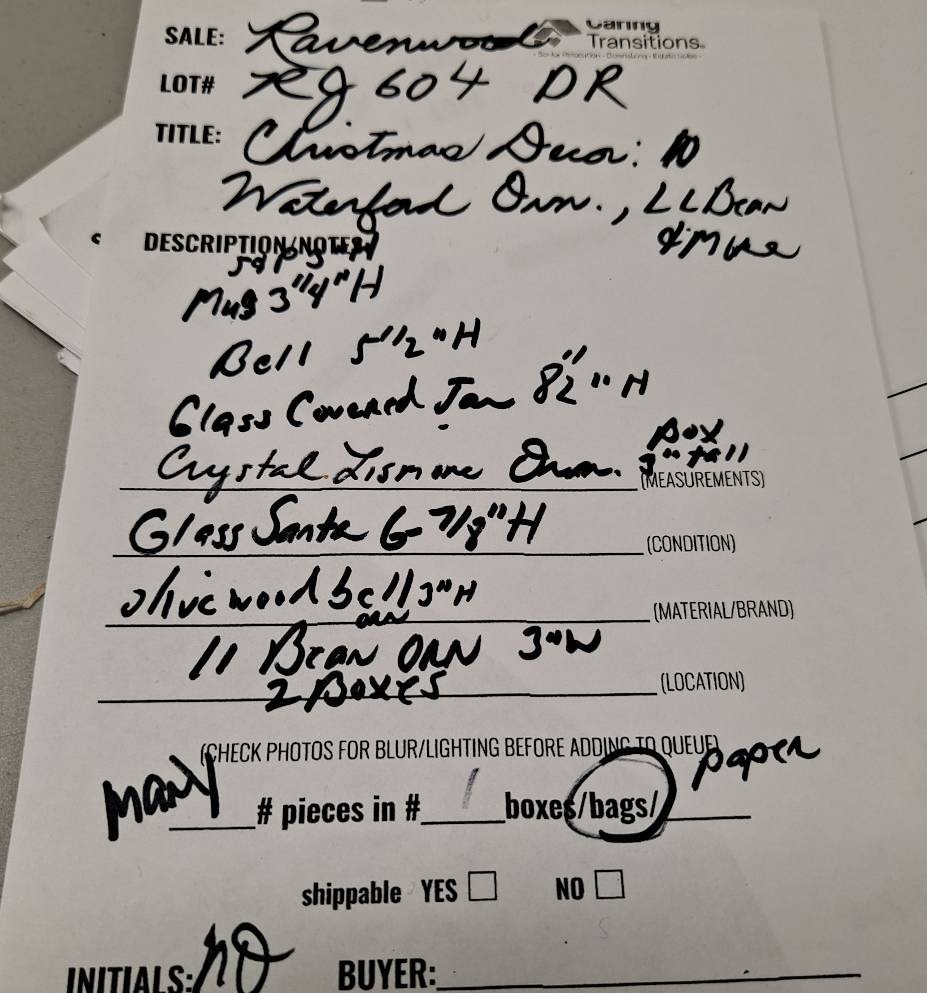 Caring
SALE: Ravenwood Transitions.
LOT# RJ 604 DR
TITLE: Christmas Decor: 10
Waterford Orn., LL Bean
& More
DESCRIPTION/NOTES:
Mug 3 1/4" H
Bell 5 1/2" H
Glass Covered Jar 8 1/2" H
Crystal Lismore Orn. Box 3" tall (MEASUREMENTS)
Glass Santa 6 7/8" H (CONDITION)
olive wood bell orn 3" H (MATERIAL/BRAND)
11 Bean ORN 3" W
2 Boxes (LOCATION)
(CHECK PHOTOS FOR BLUR/LIGHTING BEFORE ADDING TO QUEUE)
many # pieces in # 1 boxes/bags/ paper
shippable YES NO
INITIALS: BUYER: